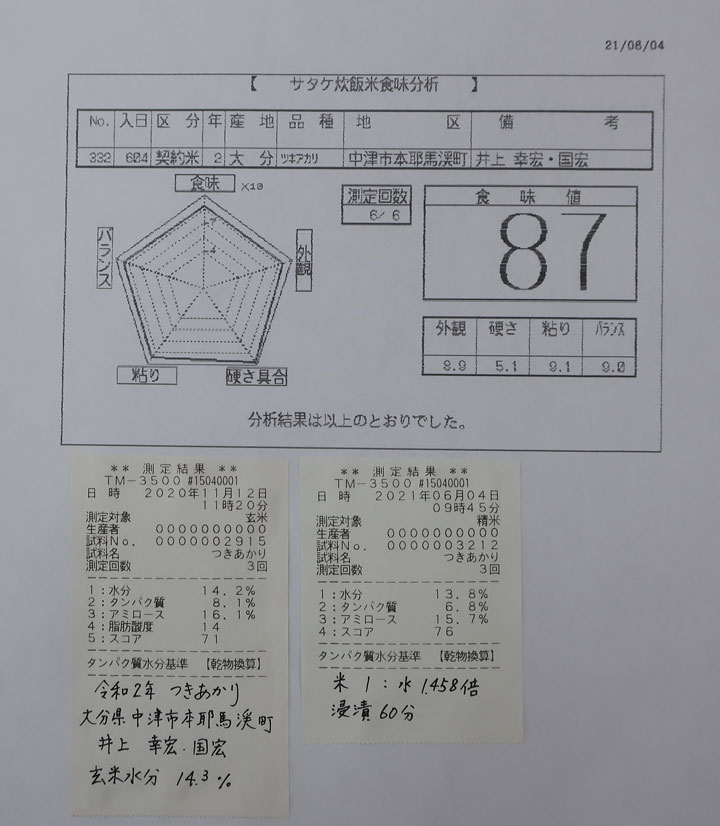 21/06/04
【 サタケ炊飯米食味分析 】
No. 入日 区分 年 産地 品種 地区 備考
332 604 契約米 2 大分 ツキアカリ 中津市本耶馬渓町 井上 幸宏・国宏
食味 ×10
バランス
外観
7
4
粘り
硬さ具合
測定回数
6/ 6
食味値
87
外観 硬さ 粘り バランス
8.9 5.1 9.1 9.0
分析結果は以上のとおりでした。
** 測定結果 **
TM-3500 #15040001
日 時 2020年11月12日
11時20分
測定対象 玄米
生産者 00000000000
試料No. 0000002915
試料名 つきあかり
測定回数 3回
1:水分 14.2%
2:タンパク質 8.1%
3:アミロース 16.1%
4:脂肪酸度 14
5:スコア 71
タンパク質水分基準 【乾物換算】
令和2年 つきあかり
大分県中津市本耶馬渓町
井上 幸宏.国宏
玄米水分 14.3%
** 測定結果 **
TM-3500 #15040001
日 時 2021年06月04日
09時45分
測定対象 精米
生産者 00000000000
試料No. 0000003212
試料名 つきあかり
測定回数 3回
1:水分 13.8%
2:タンパク質 6.8%
3:アミロース 15.7%
4:スコア 76
タンパク質水分基準 【乾物換算】
米 1 : 水 1.458倍
浸漬 60分